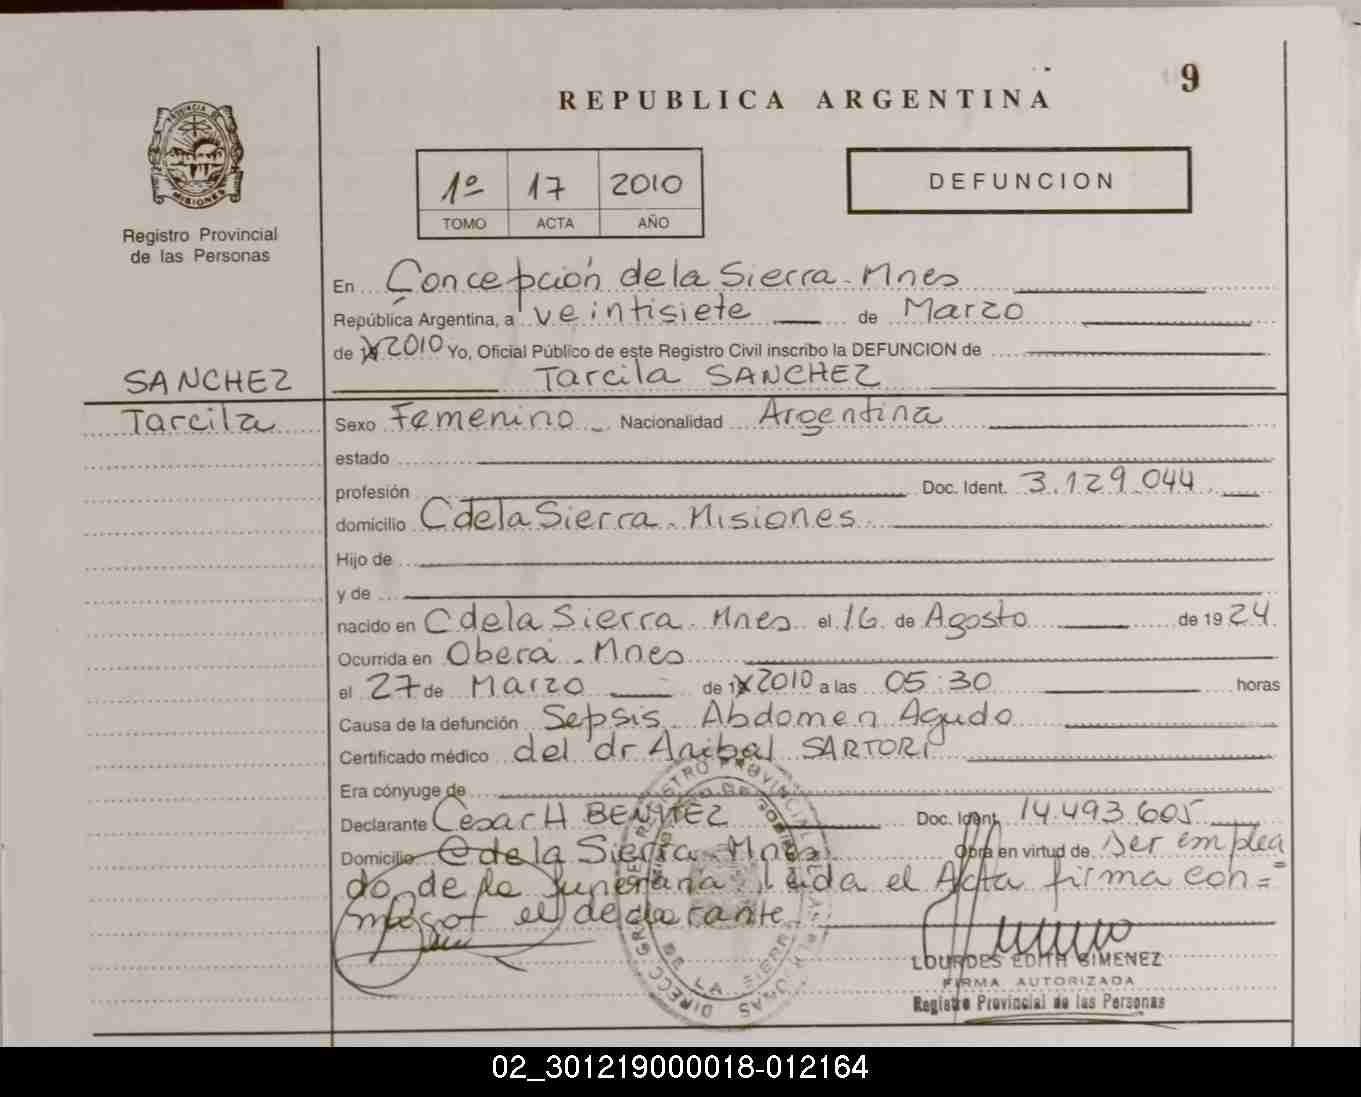 9
REPUBLICA ARGENTINA
PROVINCIA DE
MISIONES
1º 17 2010
TOMO ACTA AÑO
DEFUNCION
Registro Provincial
de las Personas
En Concepción de la Sierra - Mnes
República Argentina, a veintisiete de Marzo
de 2010 Yo, Oficial Público de este Registro Civil inscribo la DEFUNCION de
SANCHEZ
Tarcila SANCHEZ
Tarcila
Sexo Femenino Nacionalidad Argentina
estado
profesión Doc. Ident. 3.129.044
domicilio C de la Sierra - Misiones
Hijo de
y de
nacido en C de la Sierra - Mnes el 16 de Agosto de 1924
Ocurrida en Oberá - Mnes
el 27 de Marzo de 2010 a las 05:30 horas
Causa de la defunción Sepsis Abdomen Agudo
Certificado médico del dr Anibal SARTORI
Era cónyuge de
Declarante Cesar H BENITEZ Doc. Ident. 14.493.605
Domicilio C de la Sierra - Mnes Obra en virtud de Ser emplea
do de la funeraria. Leida el Acta firma con=
migo el declarante
LOURDES EDITH GIMENEZ
FIRMA AUTORIZADA
Registro Provincial de las Personas
02_301219000018-012164